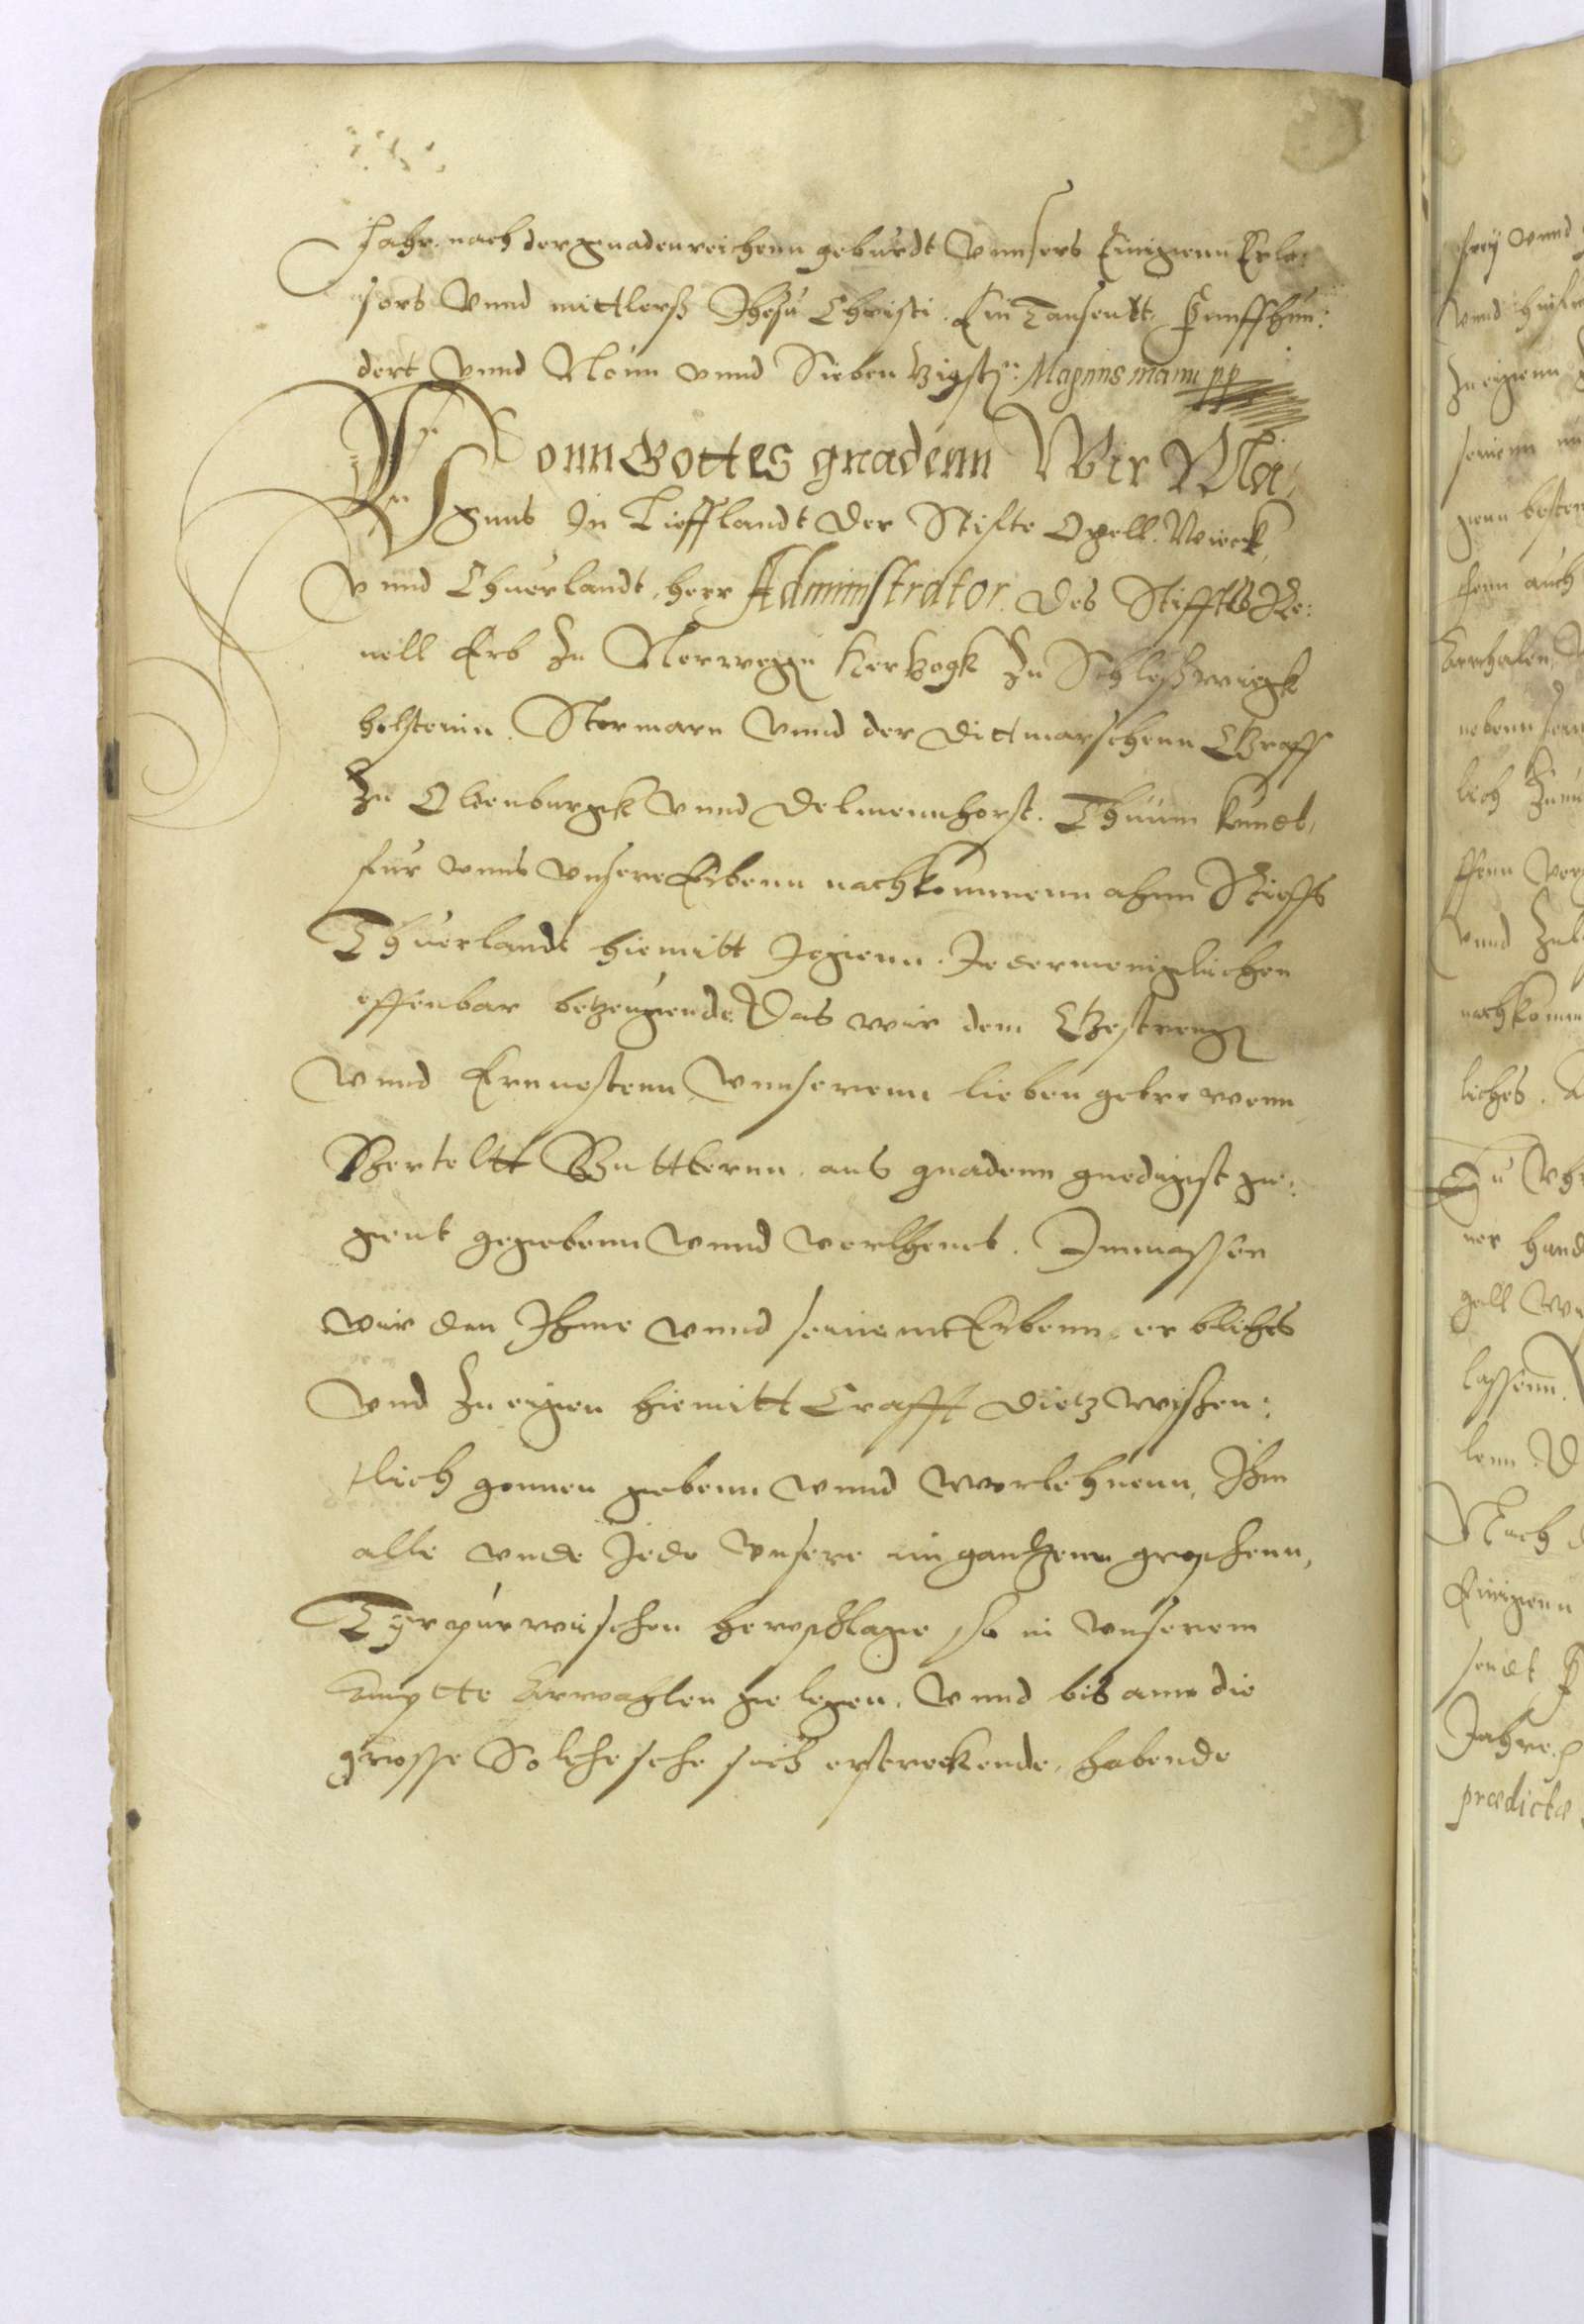 Jahr. nach der gnadenreichenn geburdt vnnsers Einigenn Erlo:
sers vnnd mittlerß Jhesu Christi. Ein Tausentt Funffhun:
dert vnnd Neun vnnd Sieben tzigsten: Magnus manu pp
Vonn Gottes gnadenn Wir Ma,
gnus In Liefflandt der Stifte Ozell. Wieck,
vnnd Churlandt, herr Administrator. des Stiffts Re:
uell Erb Zu Norwegen Hertzogk Zu Schleßwiegk
holstein. Stormarn vnnd der Dittmarschenn Graff
Zu Oldenburgk vnnd Delmennhorst. Thuun kundt,
fur vnns vnsere Erbenn nachkommenn ahm Stiffs
Churlandt hiemitt Jegenn. Jedermeniglichen
offenbar betzeugende Das wir dem Gestrengen
vnnd Ernuestenn vnnserenn lieben getrewenn
Berteltt Buttlernn. aus gnadenn gnedigst ge:
gent gegebenn vnnd verlhent. Inmassen
wir den Ihme vnnd seinenn Erbenn erbliches
vnd Zu eigen hiemitt Crafft dietz wissen:
tlich gonnen gebenn vnnd vorlehnenn, Ihm
alle vnde Jede vnsere im gantzenn
so in vnserem
Amptte Arwahlen gelegen. vnnd bis ann die
grosse sich erstreckende, habende
frey vnnd
vnnd
Zu eigenn
seinenn
genn besten
auch
nebenn sein
lich Zum
ffenn
vnnd
nachkomm
liches.
ner hand
lassenn.
lenn. D
Nach d
Einigenn
sendt F
Jahre.
prædictæ